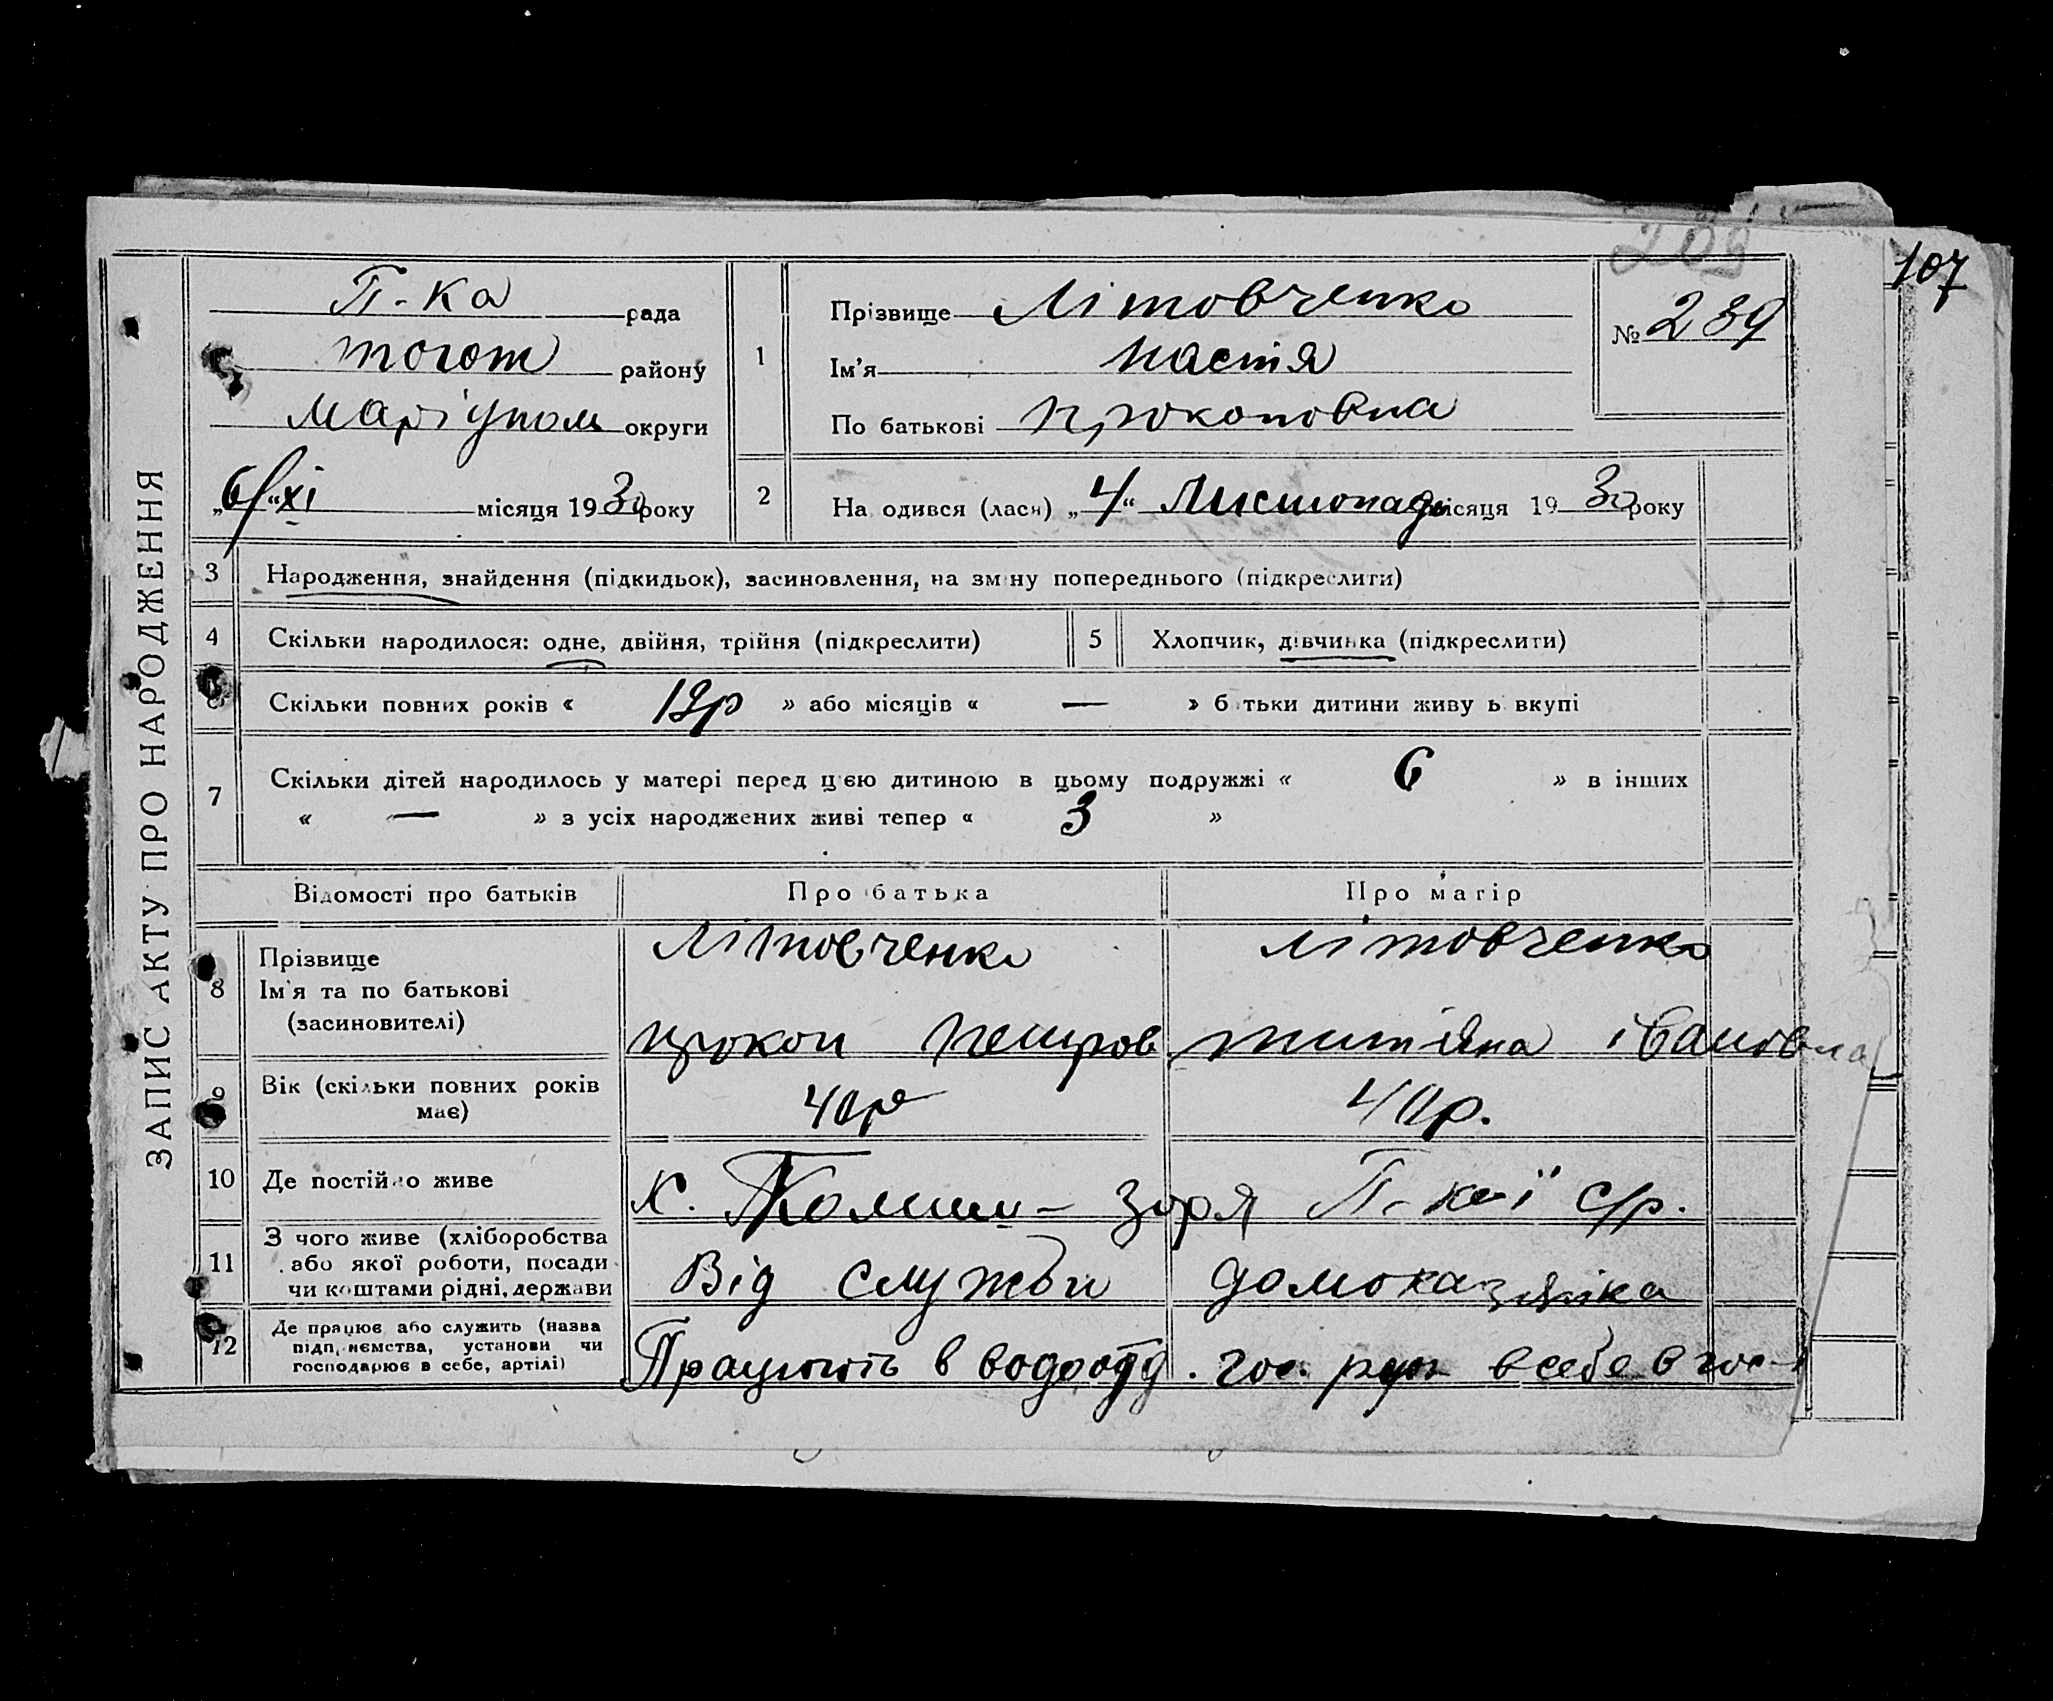 107
П-ка рада
тогож району
Маріупом округи
„6/“ хі місяця 1930 року
1
Прізвище Літовченко
Ім’я Настя
По батькові Прокоповна
№ 239
2
На одився (лася) „4“ Листопада місяця 1930 року
ЗАПИС АКТУ ПРО НАРОДЖЕННЯ
3 Народження, знайдення (підкидьок), засиновлення, на зміну попереднього (підкреслити)
4 Скільки народилося: одне, двійня, трійня (підкреслити) 5 Хлопчик, дівчинка (підкреслити)
6 Скільки повних років « 19р » або місяців « — » б тьки дитини живу ь вкупі
7 Скільки дітей народилось у матері перед цією дитиною в цьому подружжі « 6 » в інших
« — » з усіх народжених живі тепер « 3 »
Відомості про батьків Про батька Про матір
8 Прізвище
Ім’я та по батькові
(засиновителі)
Літовченко Літовченко
Прокоп Петров Титяна Івановна
9 Вік (скільки повних років має) 40р 40р.
10 Де постійно живе Х. Зоря П-кої с/р.
11 З чого живе (хліборобства
або якої роботи, посади
чи коштами рідні, держави
Від служби домоказяіка
12 Де працює або служить (назва
підприємства, установи чи
господарює в себе, артілі)
Працюють в вод. гос. в себе в гос-і